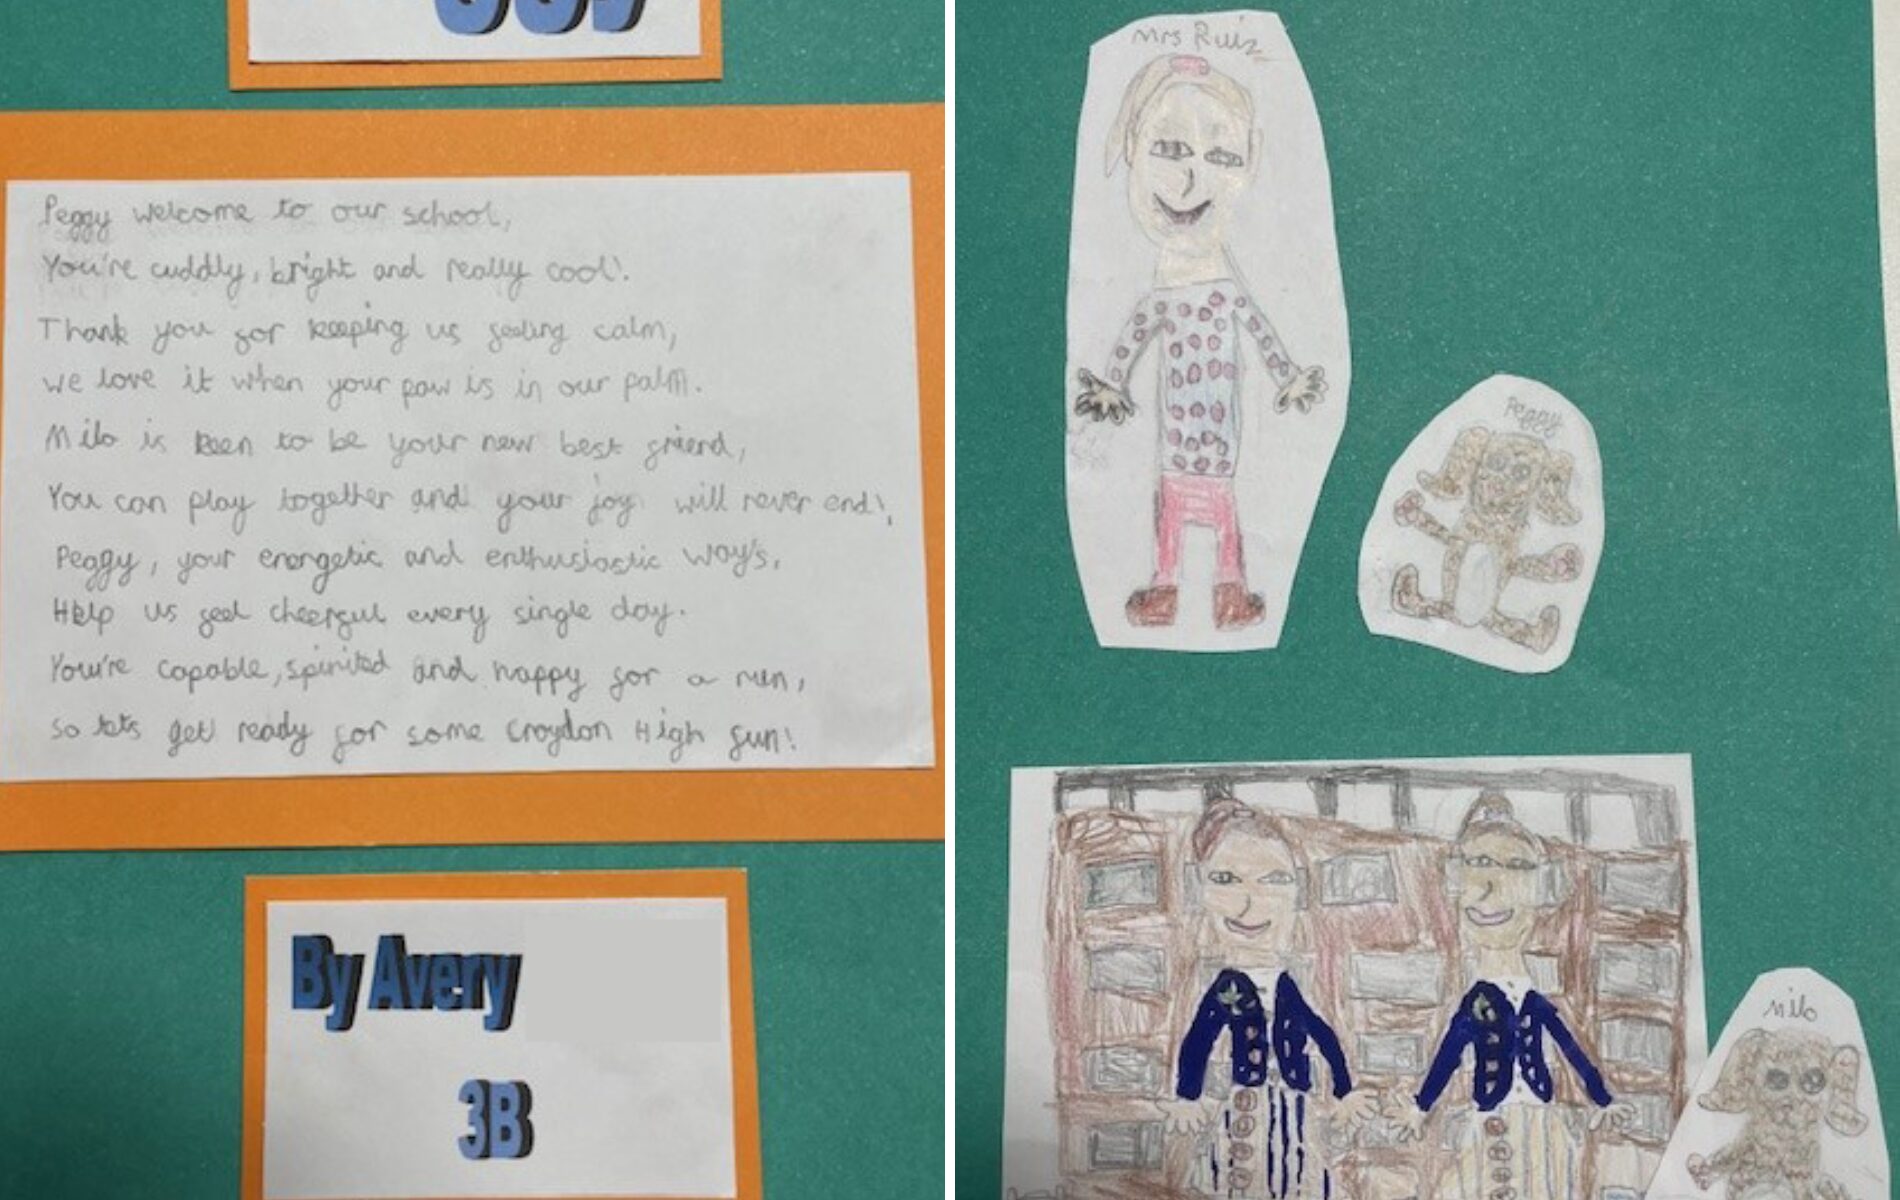 Peggy welcome to our school,
You're cuddly, bright and really cool!.
Thank you for keeping us feeling calm,
we love it when your paw is in our palm.
Milo is keen to be your new best friend,
You can play together and your joy will never end!,
Peggy, your energetic and enthusiastic way's,
Help us feel cheerful every single day.
You're capable, spirited and happy for a run,
so lets get ready for some Croydon High fun!
By Avery
3B
Mrs Ruiz
Peggy
Milo